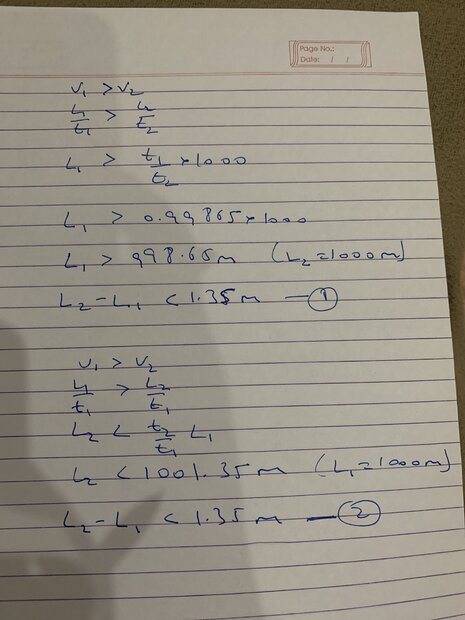 Page No.:
Date: / /
V₁ > V₂
L₁/t₁ > L₂/t₂
L₁ > t₁/t₂ × 1000
L₁ > 0.99865 × 1000
L₁ > 998.65m (L₂ = 1000m)
L₂ - L₁ < 1.35m — ①
V₁ > V₂
L₁/t₁ > L₂/t₁
L₂ < t₂/t₁ L₁
L₂ < 1001.35m (L₁ = 1000m)
L₂ - L₁ < 1.35m — ②